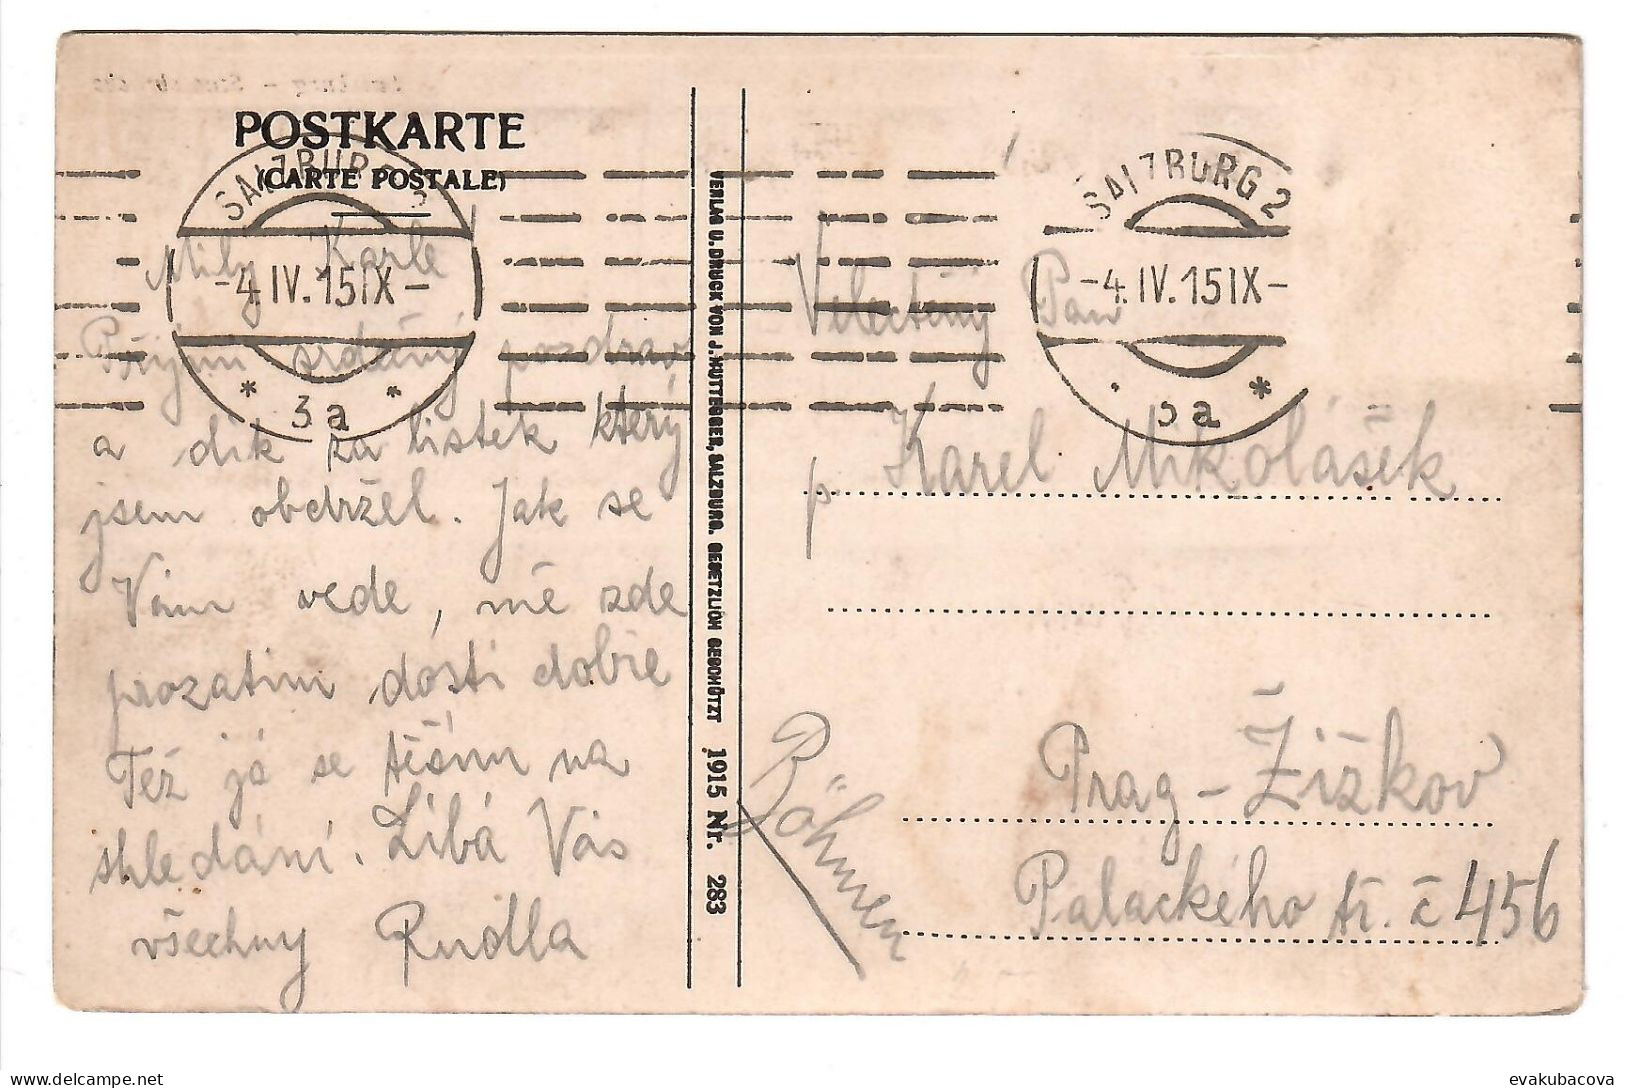 POSTKARTE
(CARTE POSTALE)
SALZBURG 2
-4.IV.15IX-
* 3a *
Milý Karle
Přijmi srdečný pozdrav
a dík za lístek který
jsem obdržel. Jak se
Vám vede, mě zde
prozatim dosti dobře
Též já se těším na
shledání. Líbá Vás
všechny Rudla
VERLAG U. DRUCK VON J. HUTTEGGER, SALZBURG. GESETZLICH GESCHÜTZT 1915 Nr. 283
SALZBURG 2
-4.IV.15IX-
a *
Velectěný Pan
p Karel Mikolášek
Prag - Žižkov
Palackého tř. č 456
Böhmen
delcampe.net
evakubacova